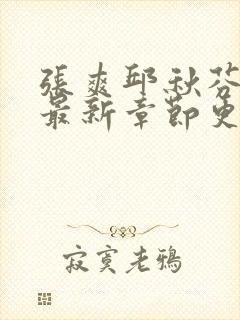 張爽邱秋芬
最新章節更
寂寞老鴉